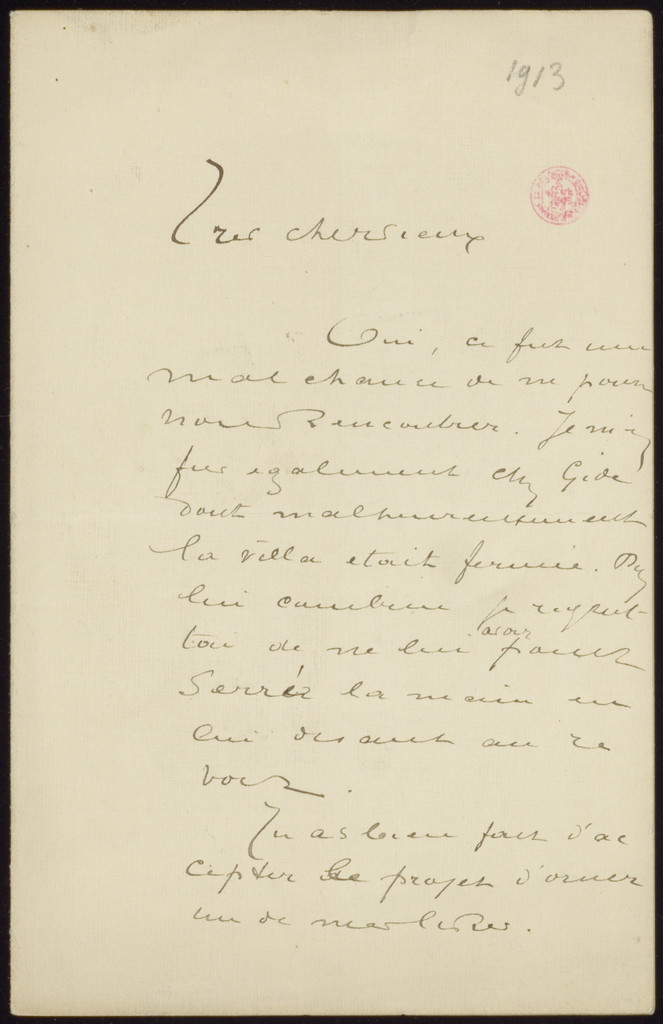 1913
Tres cher vieux
Oui, ce fut une
malchance de ne pouvoir
nous Rencontrer. Je
fus egalement chez Gide
dont malheureusement
la villa etait fermée.
lui combien je regret-
tai de ne lui avoir point
Serrér la main en
lui disant au re
voir.
Tu as bien fait d'ac
cepter le projet d'orner
un de mes livres.